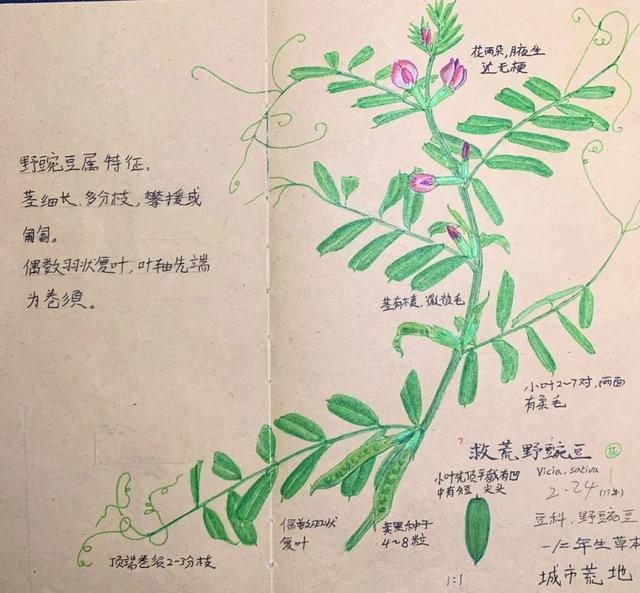 野豌豆属特征。
茎细长、多分枝，攀援或
匍匐。
偶数羽状复叶，叶轴先端
为卷须。
花两朵，腋生
近无梗
茎有棱，微被毛
小叶2~7对，两面
有柔毛
救荒野豌豆
花
Vicia. sativa
2.24
豆科，野豌豆
一/二年生草本
城市荒地
小叶先顶平截有凹
中有短尖头
1:1
荚果种子
4~8粒
偶数羽状
复叶
顶端卷须2-3分枝